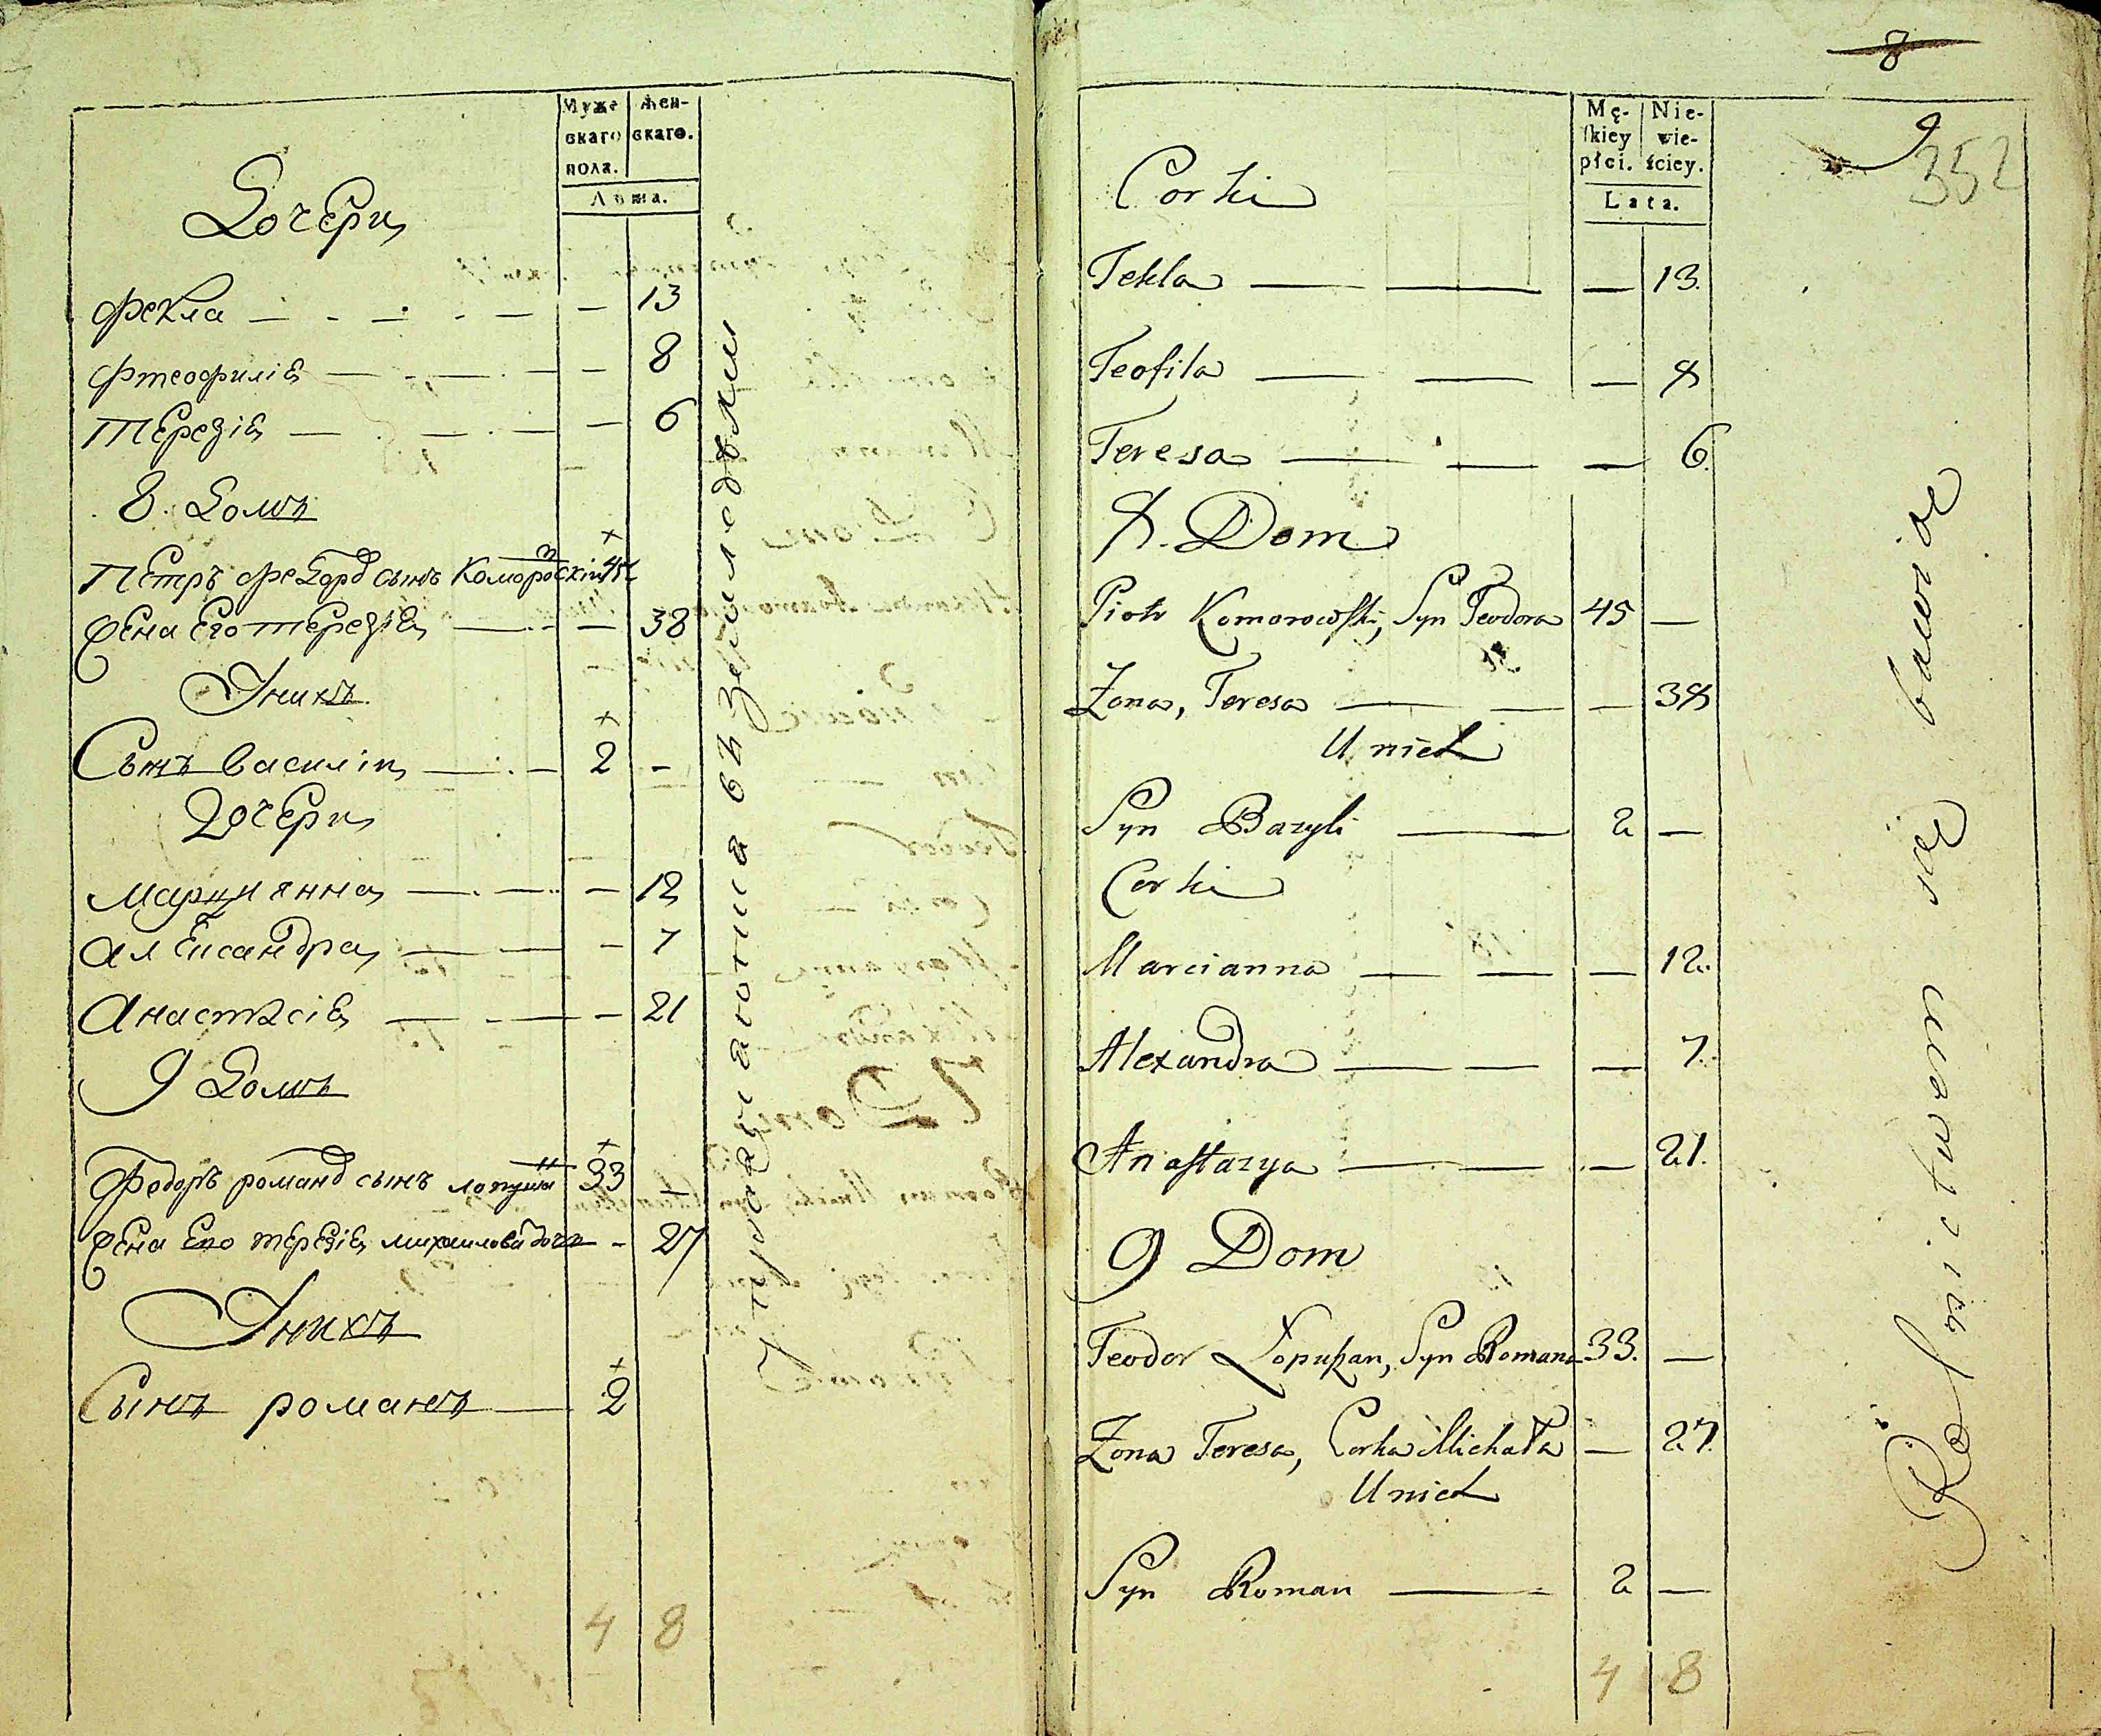 Муже
скаго
пола.
Жен-
скаго.
Лѣта.
Дочери
Фекла — — — — — 13
Фтеофилія — — — — 8
Терезія — — — — 6
8. Домъ
Петръ Федоров сынъ Коморовскій 45
Жена Его Терезія — — 38
У них
Сынъ Василій — — 2 —
Дочери
Марціянна — — — 12
Александра — — — 7
Анастасія — — — 21
9 Домъ
Федоръ романов сынъ лопушан 33 —
Жена Его Терезія михаилова дочь — 27
У нихъ
Сынъ романъ — 2
4 8
въ земледѣлии
8
352
Mę-
ſkiey
płci.
Nie-
wie-
ściey.
Lata.
Corki
Tekla — — — 13.
Teofila — — — 8
Teresa — — — 6.
8. Dom
Piotr Komorowſki, Syn Teodora 45 —
Zona, Teresa — — — 38
U nich
Syn Bazyli — 2 —
Corki
Marcianna — — — 12.
Alexandra — — — 7.
Anaſtazya — — — 21.
9 Dom
Teodor Łopuſzan, Syn Romana 33. —
Zona Teresa, Corka Michała — 27.
U nich
Syn Roman — 2 —
4 8
Rolnictwem się bawiące